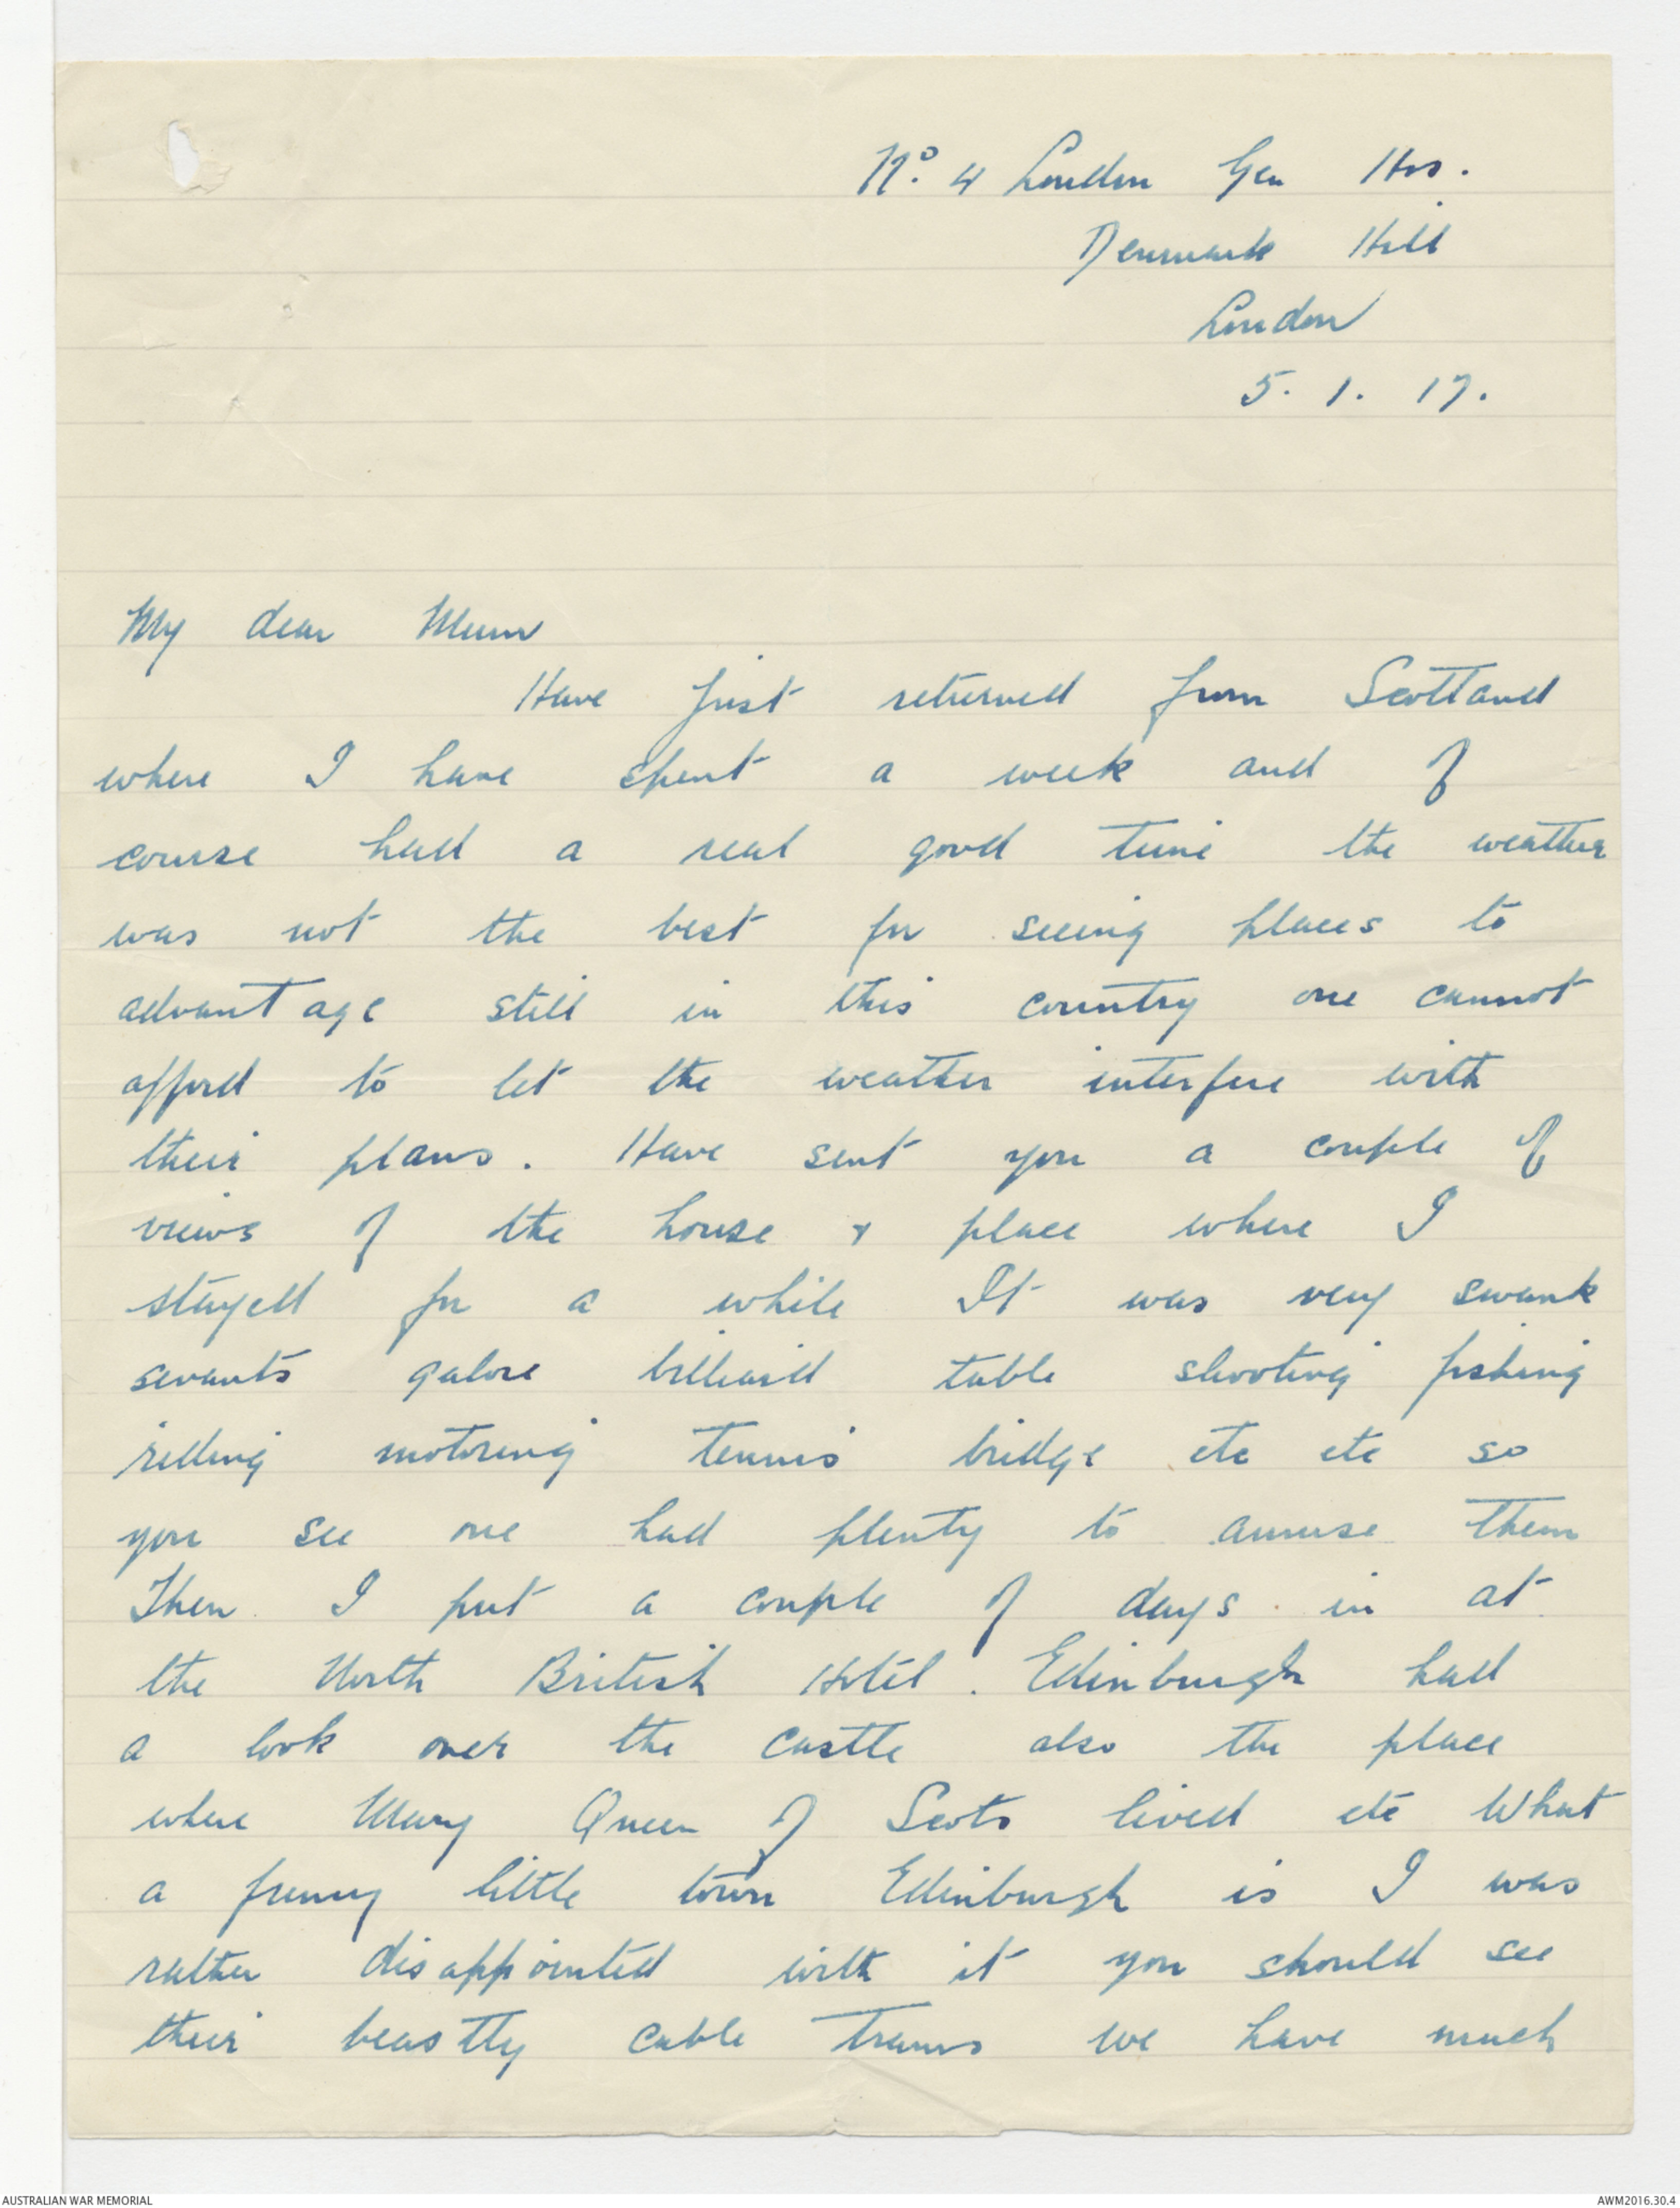 No. 4 London Gen Hos.
Denmark Hill
London
5. 1. 17.
My dear Mum
Have just returned from Scotland
where I have spent a week and of
course had a real good time the weather
was not the best for seeing places to
advantage still in this country one cannot
afford to let the weather interfere with
their plans. Have sent you a couple of
views of the house & place where I
stayed for a while It was very swank
servants galore billiard table shooting fishing
riding motoring tennis bridge etc etc so
you see one had plenty to amuse them
Then I put a couple of days in at
the North British Hotel. Edinburgh had
a look over the castle also the place
where Mary Queen of Scots lived etc What
a funny little town Edinburgh is I was
rather disappointed with it you should see
their beastly cable trams we have much
AUSTRALIAN WAR MEMORIAL
AWM2016.30.4